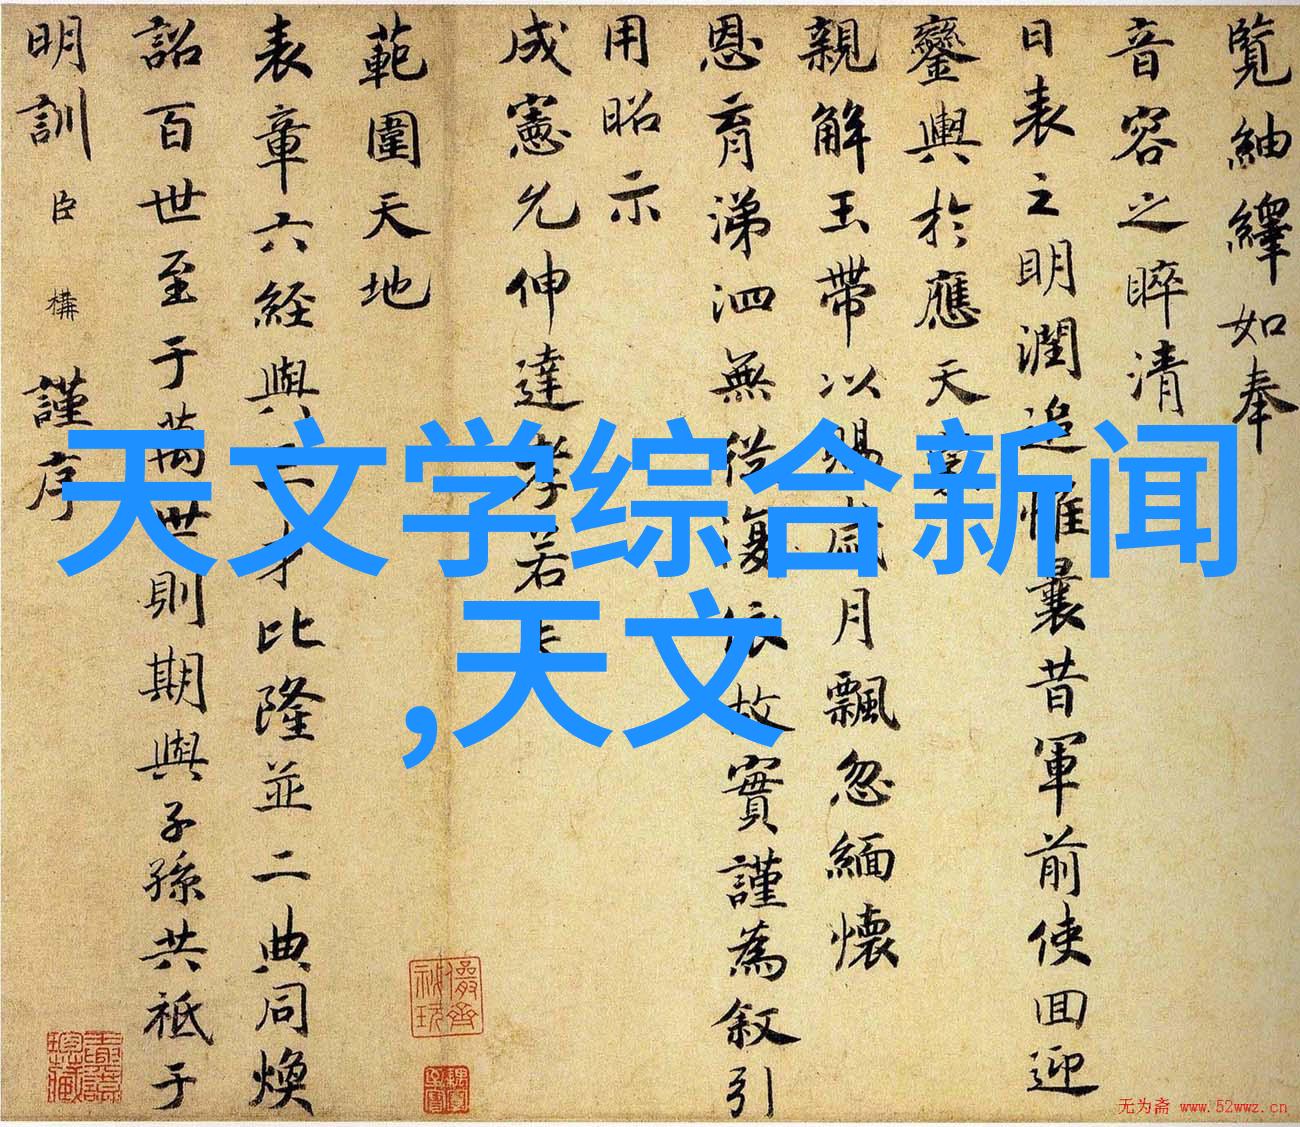 天文学综合新闻
,天文
覽紬繹如奉
音容之睟清
日表之明潤追惟曩昔軍前使回迎
鑾輿於應天
親解玉帶以賜歲月飄忽緬懷
恩育涕泗無從復依故實謹為叙引
用昭示
成憲允伸達孝若
範圍天地
表章六經與才比隆並二典同煥
詔百世至于萬世則期與子孫共祗于
明訓臣構謹序
无为斋 www.52wwz.cn